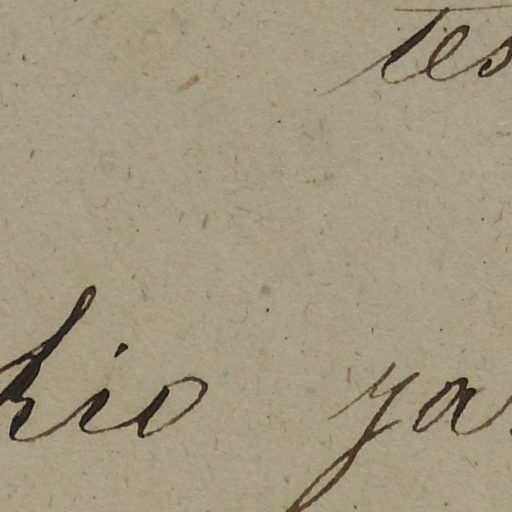 tes
hio ya